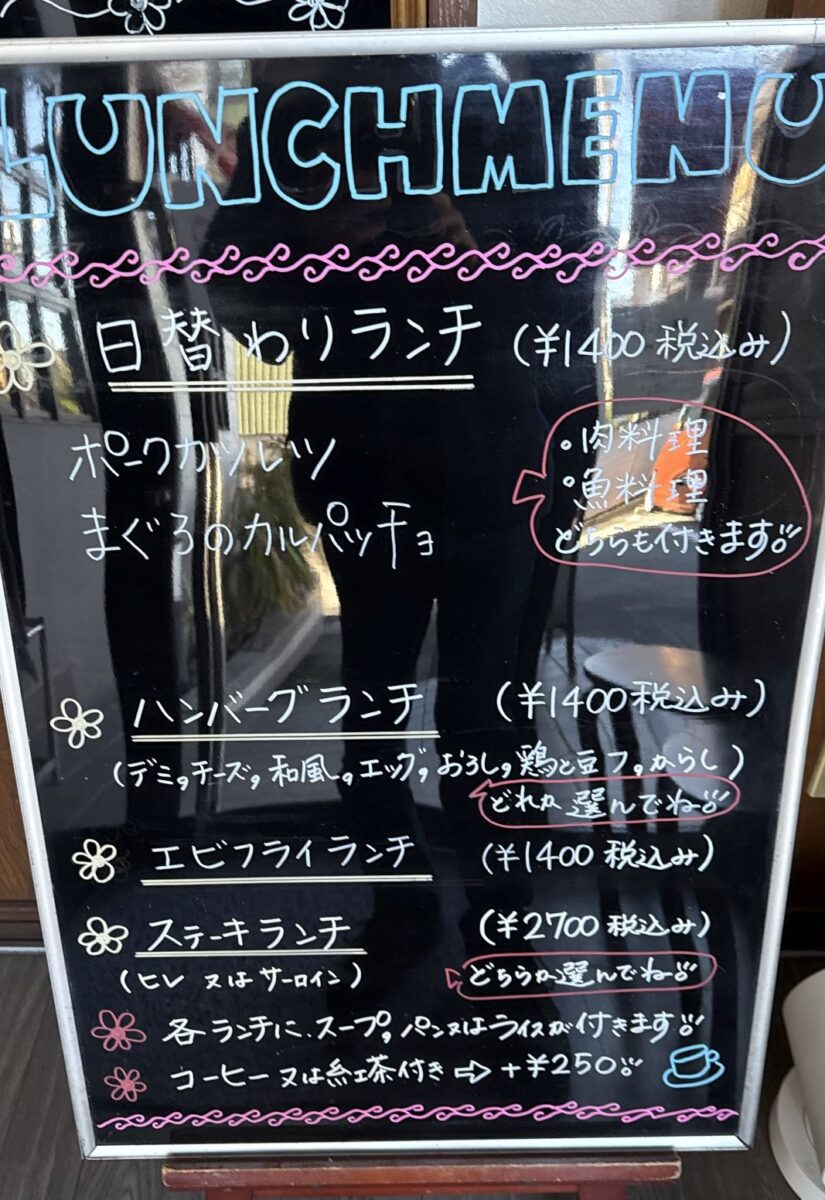 LUNCHMENU
日替わりランチ (¥1400 税込み)
ポークカツレツ
まぐろのカルパッチョ
・肉料理
・魚料理
どちらも付きます
ハンバーグランチ (¥1400 税込み)
(デミ,チーズ,和風,エッグ,おろし,鶏と豆フ,からし)
どれか選んでね
エビフライランチ (¥1400 税込み)
ステーキランチ (¥2700 税込み)
(ヒレ 又はサーロイン) どちらか選んでね
各ランチに、スープ,パン又はライスが付きます
コーヒー又は紅茶付き⇨+¥250